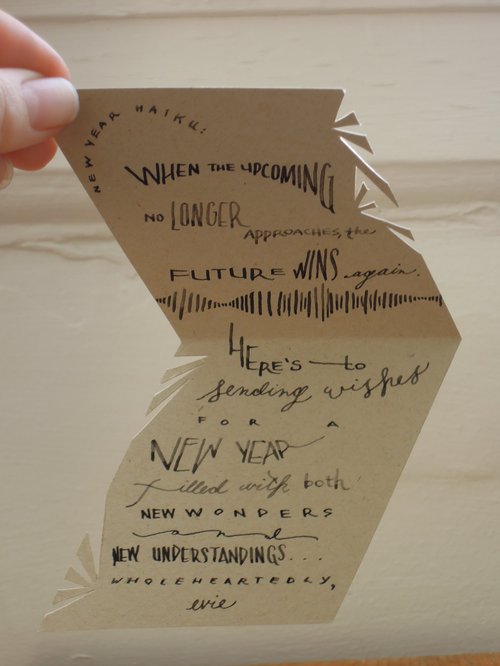 NEW YEAR HAIKU:
WHEN THE UPCOMING
NO LONGER
APPROACHES, the
FUTURE WINS again.
HERE'S to
sending wishes
FOR A
NEW YEAR
filled with both
NEW WONDERS
and
NEW UNDERSTANDINGS...
WHOLEHEARTEDLY,
evie